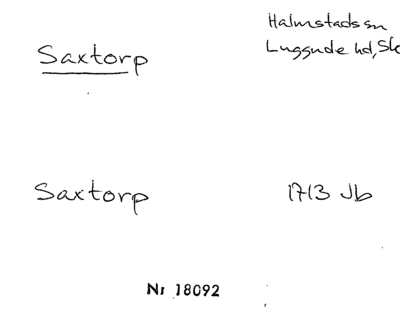 Saxtorp
Halmstads sn
Luggude hd, Sk
Saxtorp
1713 Jb
Nr 18092